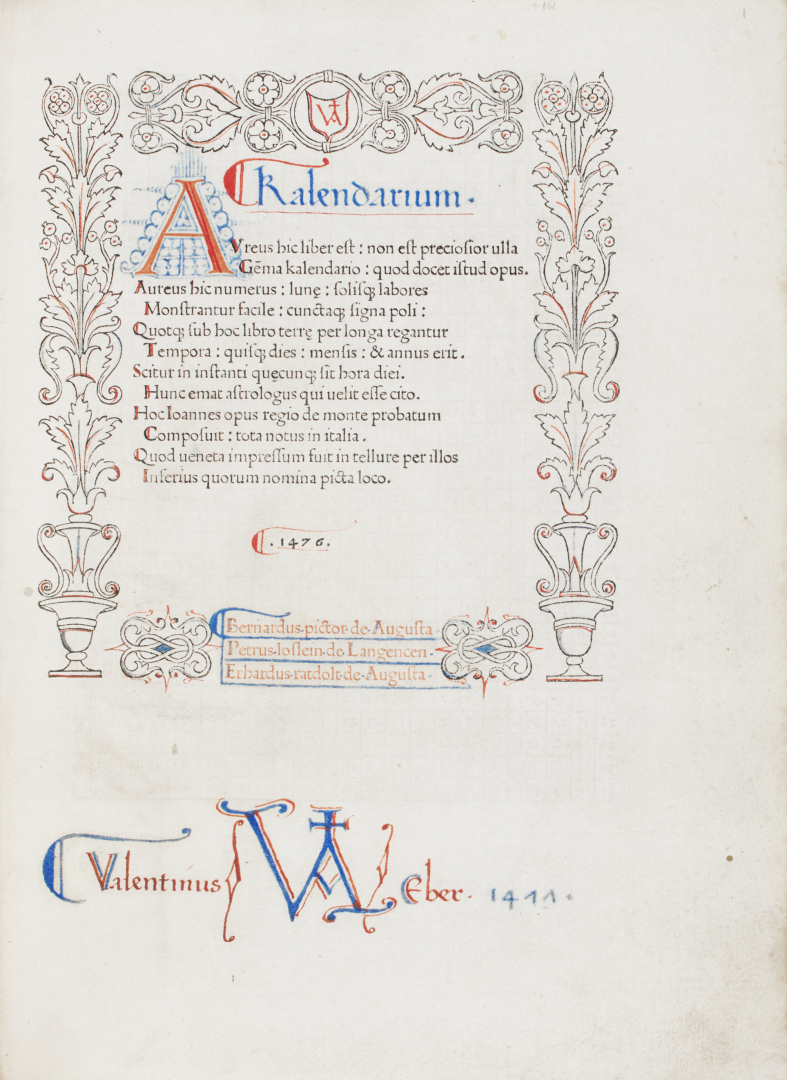 VA
Kalendarium.
AVreus hic liber eſt : non eſt precioſior ulla
Gēma kalendario : quod docet iſtud opus.
Aureus hic numerus : lunę : ſoliſqꝫ labores
Monſtrantur facile : cunctaqꝫ ſigna poli :
Quotqꝫ ſub hoc libro terrę per longa regantur
Tempora : quiſqꝫ dies : menſis : & annus erit.
Scitur in inſtanti quęcunqꝫ ſit hora diei.
Hunc emat aſtrologus qui uelit eſſe cito.
Hoc Ioannes opus regio de monte probatum
Compoſuit : tota notus in italia.
Quod ueneta impreſſum fuit in tellure per illos
Inferius quorum nomina picta loco.
.1476.
Bernardus.pictor.de.Auguſta
Petrus.loſlein.de.Langencen.
Erhardus.ratdolt.de.Auguſta.
Valentinus VA Eber.